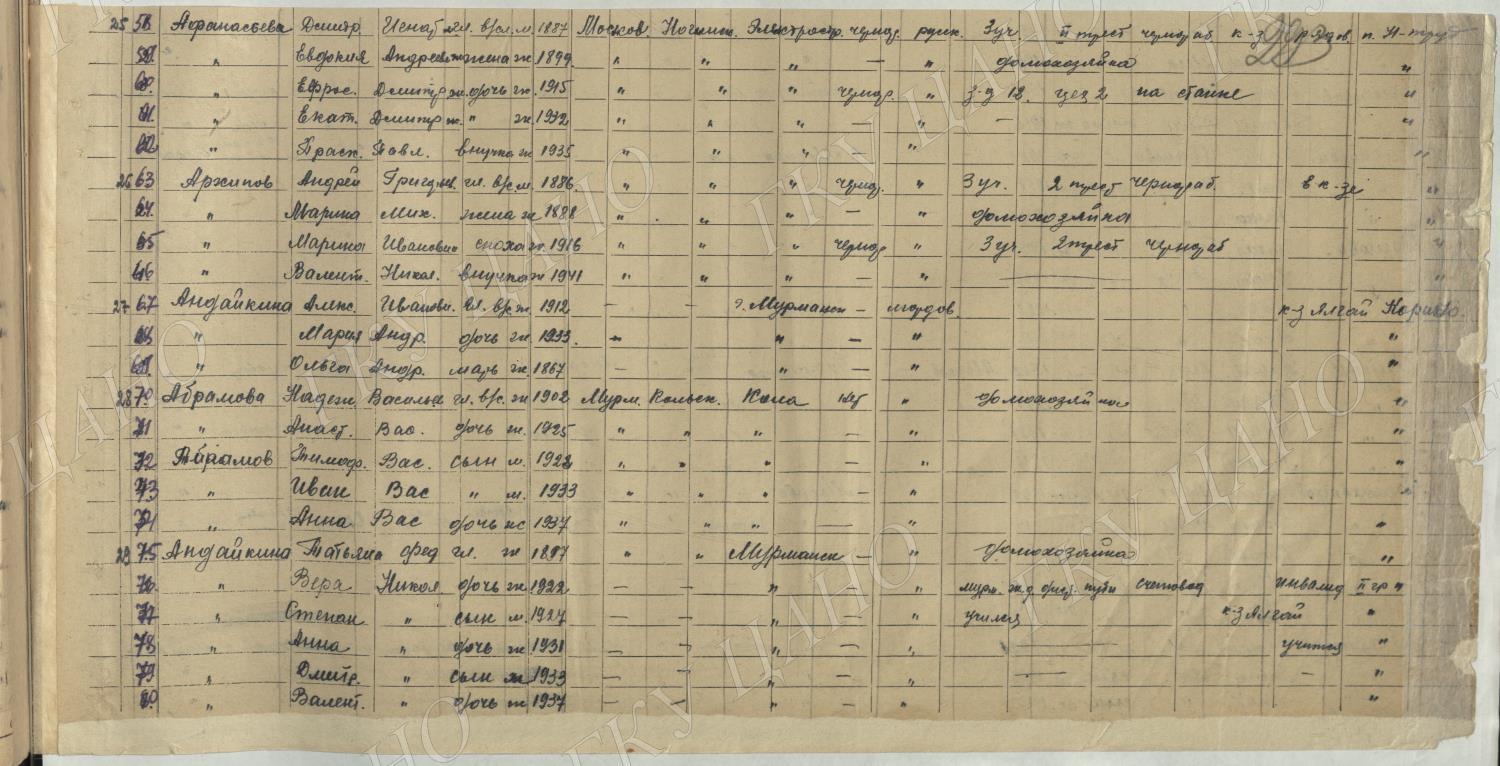 25 58 Афанасьева Дмитр. Игнат гл. в/с. м. 1887 Москов. Ногинск. Электростр. чернор. русск. 3 уч. II трест чернораб к-з рядов. п.
59. " Евдокия Андреевн жена ж. 1899. " " " — " домохозяйка "
60. " Ефрос. Дмитр ж. дочь ж. 1915 " " " чернор. " з-д 12. цех 2 на станке "
61. " Екат. Дмитр ж. " ж. 1932 " " " — " — "
62 " Праск. Павл. внучка ж 1935 " " " — " "
26 63 Архипов Андрей Григорьев. гл. в/с м. 1886. " " " чернор. " 3 уч. 2 трест чернораб. в к-зе "
64. " Марина Мих. жена ж 1888 " " " — " домохозяйка "
65 " Марина Ивановна сноха ж. 1916 " " " чернор " 3 уч. 2 трест чернораб "
66 " Валент. Никол. внучка ж 1941 " " " — " — "
27 67 Андайкина Алекс. Ивановн. гл. в/с ж. 1912 — — г. Мурманск — мордов. к-з Ялгай
68 " Мария Андр. дочь ж. 1933. " " — " "
69. " Ольга Андр. мать ж. 1867 — " — " "
28 70. Абрамова Надеж. Васильев гл. в/с. ж 1902 Мурм. Кольск. Кола " домохозяйка "
71 " Анаст. Вас. дочь ж. 1925 " " " — " "
72 Абрамов Тимоф. Вас. сын м. 1928 " " " — " "
73 " Иван Вас " м. 1933 " " " — " "
74 " Анна Вас дочь ж 1937 " " " — " "
29 75 Андайкина Татьяна Фед гл. ж 1897 " " Мурманск — " домохозяйка "
76. " Вера Никол дочь ж. 1922 — — " — " мурм. ж.д. пути счетовод инвалид II гр "
77 " Степан " сын м. 1927 — — " — " учился к-з Ялгай "
78 " Анна " дочь ж 1931 — — " — " — учится "
79 " Дмитр. " сын м 1933 — — " — " — — "
80. " Валент. " дочь ж 1937 — — " — " "